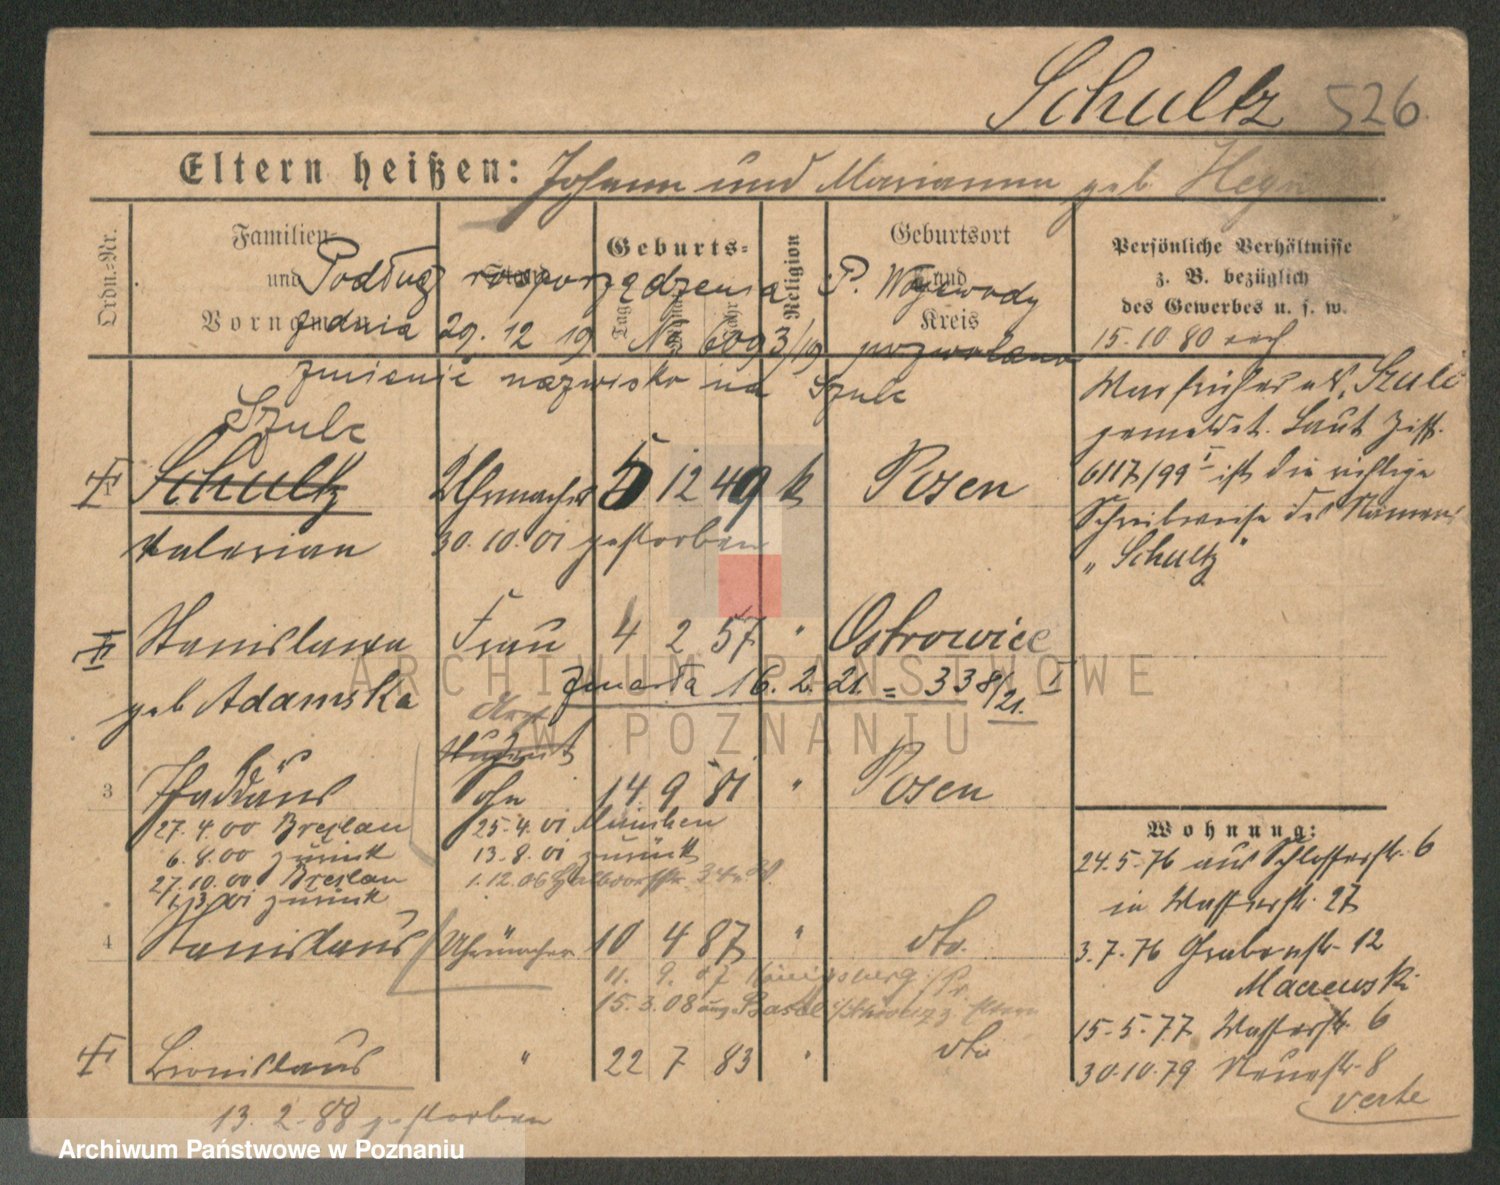 Schultz 526.
Eltern heißen: Johann und Marianna geb
Ordn.-Nr.
Familien-
und
Vornamen
Stand
Geburts-
Tag
Jahr
Religion
Geburtsort
und
Kreis
Persönliche Verhältnisse
z. B. bezüglich
des Gewerbes u. s. w.
Podług rozporządzenia P. Wojewody
z dnia 29. 12. 19 No 6093/19 pozwolono
zmienić nazwisko na Szulc
15.10.80
War früher als Szulc
gemeldet. Laut
6117/99 I ist die richtige
Schreibweise des Namens
"Schultz"
Szulc
1 Schultz Uhrmacher 5 12 49 k Posen
Valerian 30.10.01 gestorben
Stanislawa Frau 4 2 57 " Ostrowice
geb Adamska zmarła 16. 2. 21. = 338/21. I
Student
3 Thaddäus Sohn 14 9 81 " Posen
27.4.00 Breslau 25.4.01 München
6.8.00 zurück 13.8.01 zurück
27.10.00 Breslau 1.12.06
zurück
4 Stanislaus Uhrmacher 10 4 87 " dto.
11. 9. 07 Königsberg /Pr.
15.3.08 Basel
Bronislaus " 22 7 83 " dto
13. 2. 88 gestorben
Wohnung:
24.5.76 aus Schlosserstr. 6
in Wasserstr. 27
3.7.76 Grabenstr. 12
15.5.77 Wasserstr. 6
30.10.79 Neuestr. 8
verte
ARCHIWUM PAŃSTWOWE
W POZNANIU
Archiwum Państwowe w Poznaniu